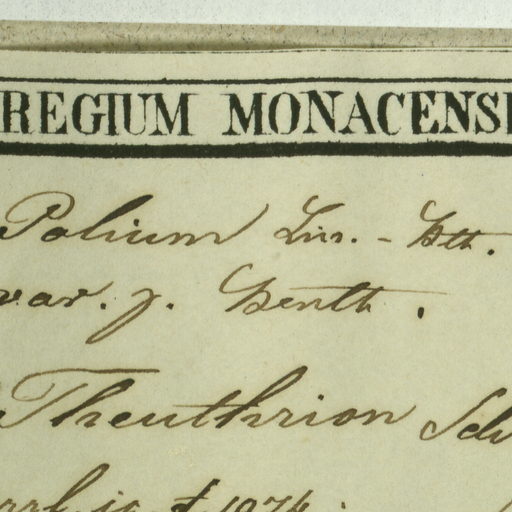 REGIUM MONACENSE
Polium Lin. - Bth.
var. γ. Benth.
Theuthrion Sch